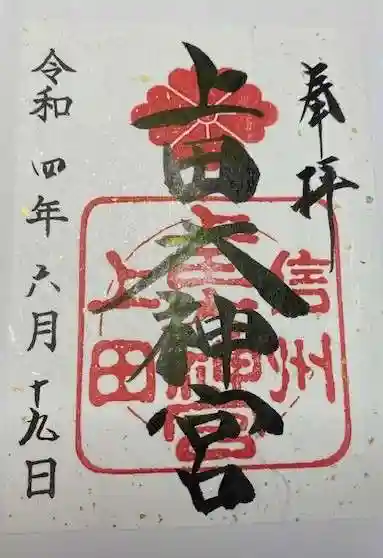 奉拝
上田大神宮
信州
上田
令和四年六月十九日